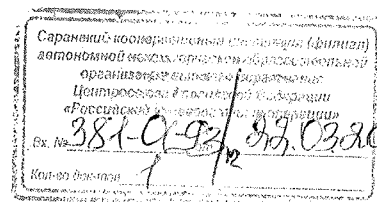 Саранский кооперативный институт (филиал)
автономной некоммерческой образовательной
организации высшего образования
Центросоюза Российской Федерации
«Российский университет кооперации»
Вх. № 381-01-93/12 22.03.20
Кол-во листов 1